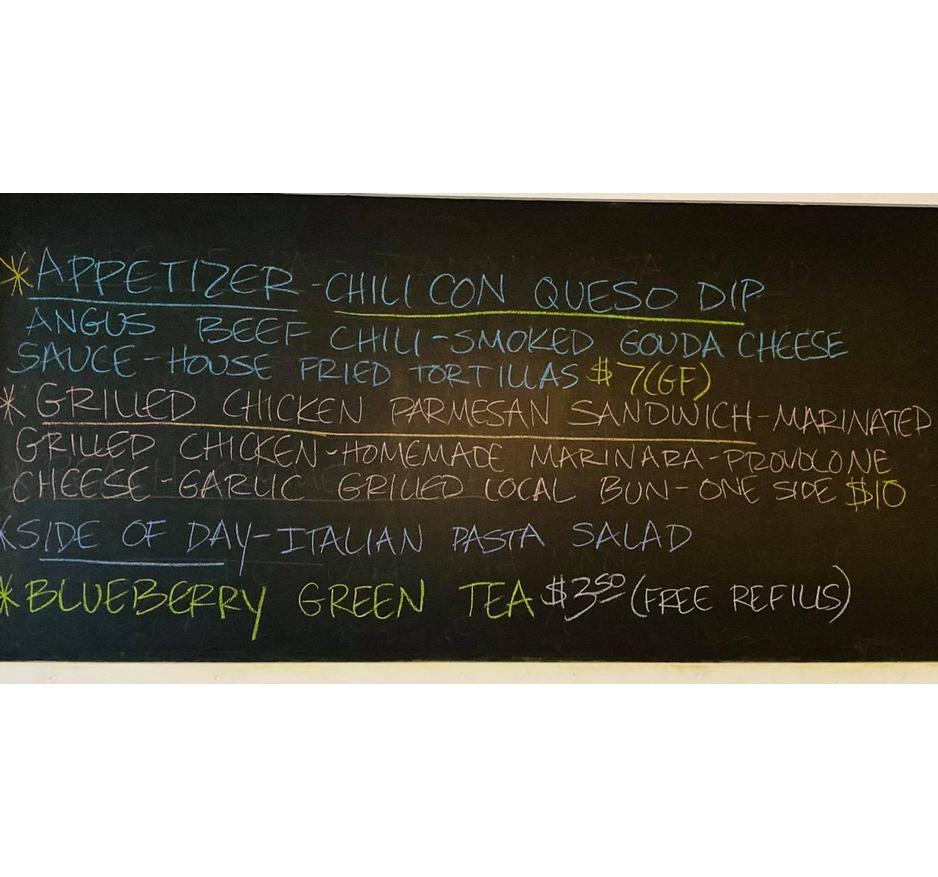 *APPETIZER-CHILI CON QUESO DIP
ANGUS BEEF CHILI-SMOKED GOUDA CHEESE
SAUCE-HOUSE FRIED TORTILLAS $7(GF)
*GRILLED CHICKEN PARMESAN SANDWICH-MARINATED
GRILLED CHICKEN-HOMEMADE MARINARA-PROVOLONE
CHEESE-GARLIC GRILLED LOCAL BUN-ONE SIDE $10
*SIDE OF DAY-ITALIAN PASTA SALAD
*BLUEBERRY GREEN TEA $3.50 (FREE REFILLS)